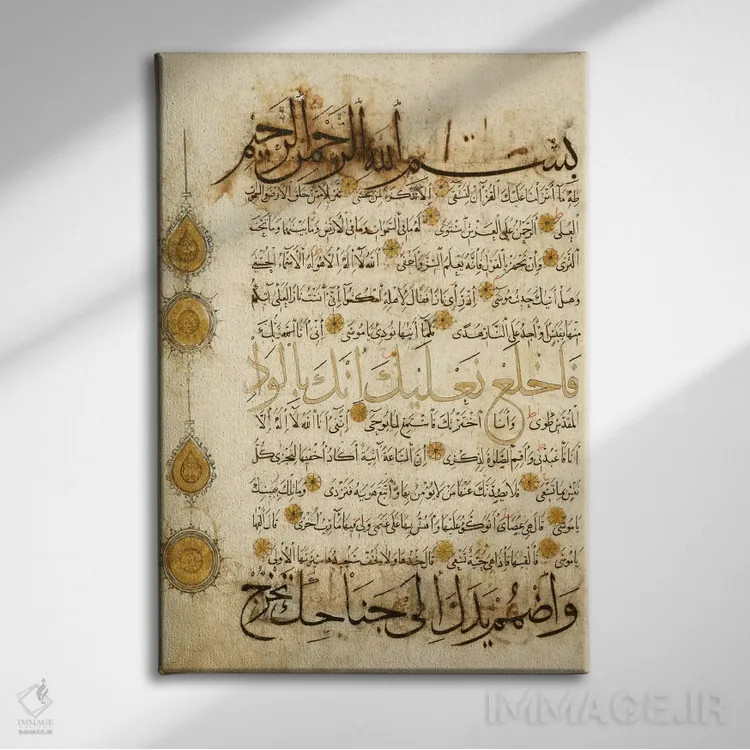 بسم الله الرحمن الرحيم
طه ما انزلنا عليك القرآن لتشقى الا تذكرة لمن يخشى تنزيلا ممن خلق الارض والسموات
العلى الرحمن على العرش استوى له ما فى السموات وما فى الارض وما بينهما وما تحت
الثرى وان تجهر بالقول فانه يعلم السر واخفى الله لا اله الا هو له الاسماء الحسنى
وهل اتيك حديث موسى اذ رأى نارا فقال لاهله امكثوا انى آنست نارا لعلى آتيكم
منها بقبس او اجد على النار هدى فلما اتيها نودى يا موسى انى انا ربك
فاخلع نعليك انك بالواد
المقدس طوى وانا اخترتك فاستمع لما يوحى اننى انا الله لا اله الا
انا فاعبدنى واقم الصلوة لذكرى ان الساعة آتية اكاد اخفيها لتجزى كل
نفس بما تسعى فلا يصدنك عنها من لا يؤمن بها واتبع هويه فتردى وما تلك بيمينك
يا موسى قال هى عصاى اتوكؤ عليها واهش بها على غنمى ولى فيها مآرب اخرى قال القها
يا موسى فالقيها فاذا هى حية تسعى قال خذها ولا تخف سنعيدها سيرتها الاولى
واضمم يدك الى جناحك تخرج
IMMAGE
IMMAGE.IR
IMMAGE.IR